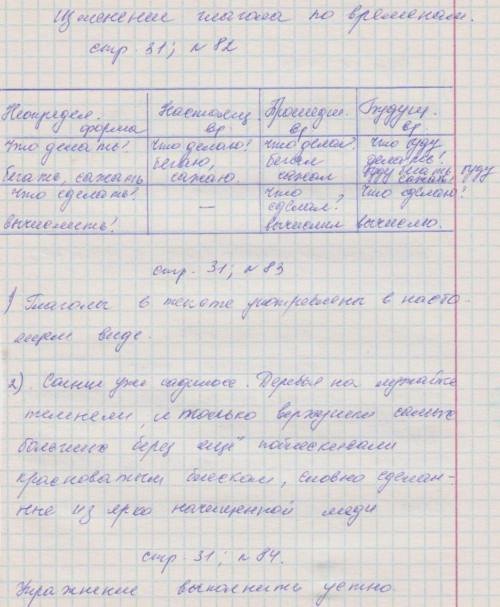 Изменение глагола по временам.
стр. 31; №82
Неопредел. форма | Настоящ. вр. | Прошедш. вр. | Будущ. вр.
Что делать? | Что делаю? | Что делал? | Что буду делать?
бегать, сажать | бегаю, сажаю. | бегал сажал | буду бегать, буду сажать.
Что сделать? | — | Что сделал? | Что сделаю?
вычислить! | вычислил | вычислю.
стр. 31; №83
1) Глаголы в тексте употреблены в насто-
ящем виде.
2) Солнце уже садилось. Деревья на лужайке
темнели, и только верхушки самых
больших берез ещё поблескивали
красноватым блеском, словно сделан-
ные из ярко начищенной меди
стр. 31; №84.
Упражнение выполнить устно.